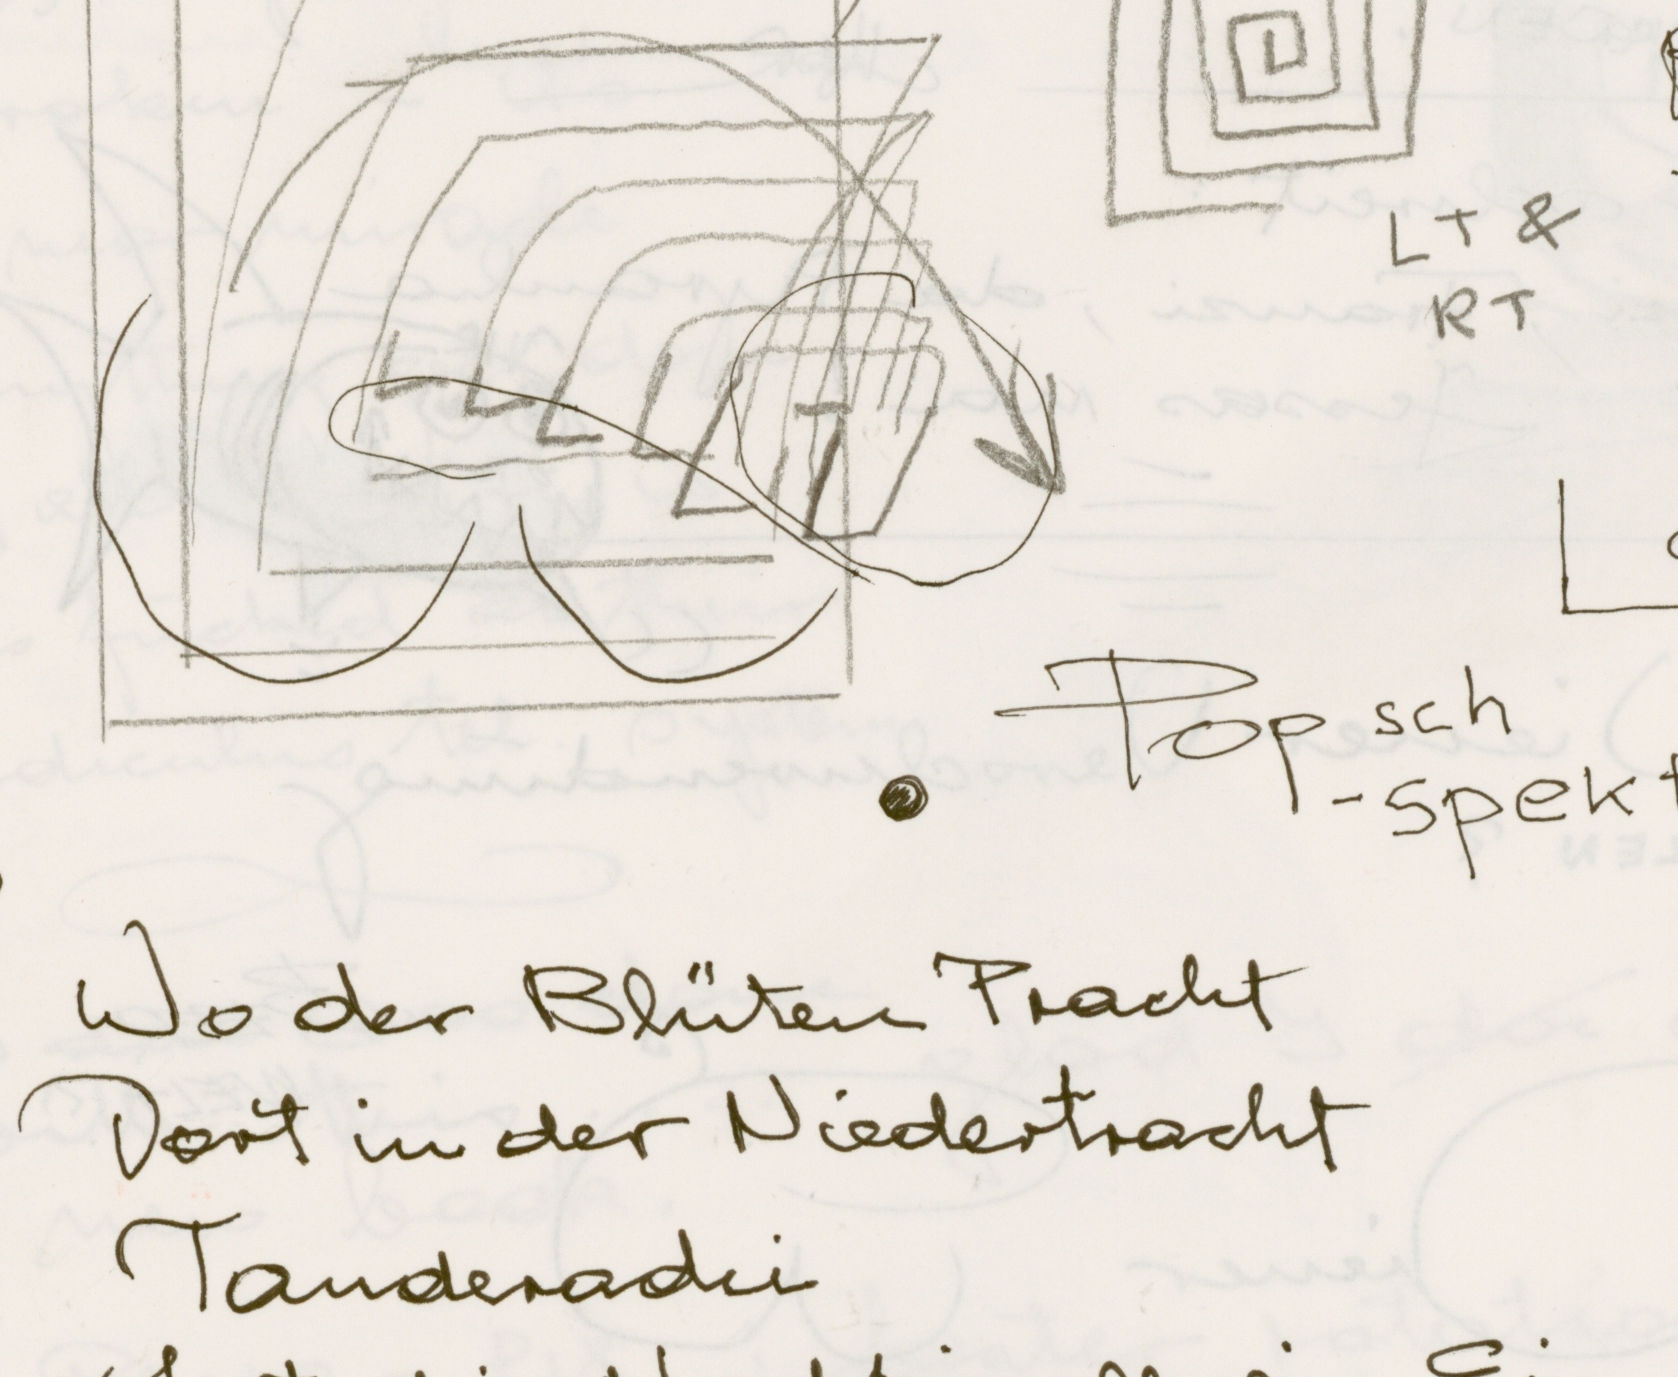 LT &
RT
Popsch
-spekt
Wo der Blüten Pracht
Dort in der Niedertracht
Tanderadei